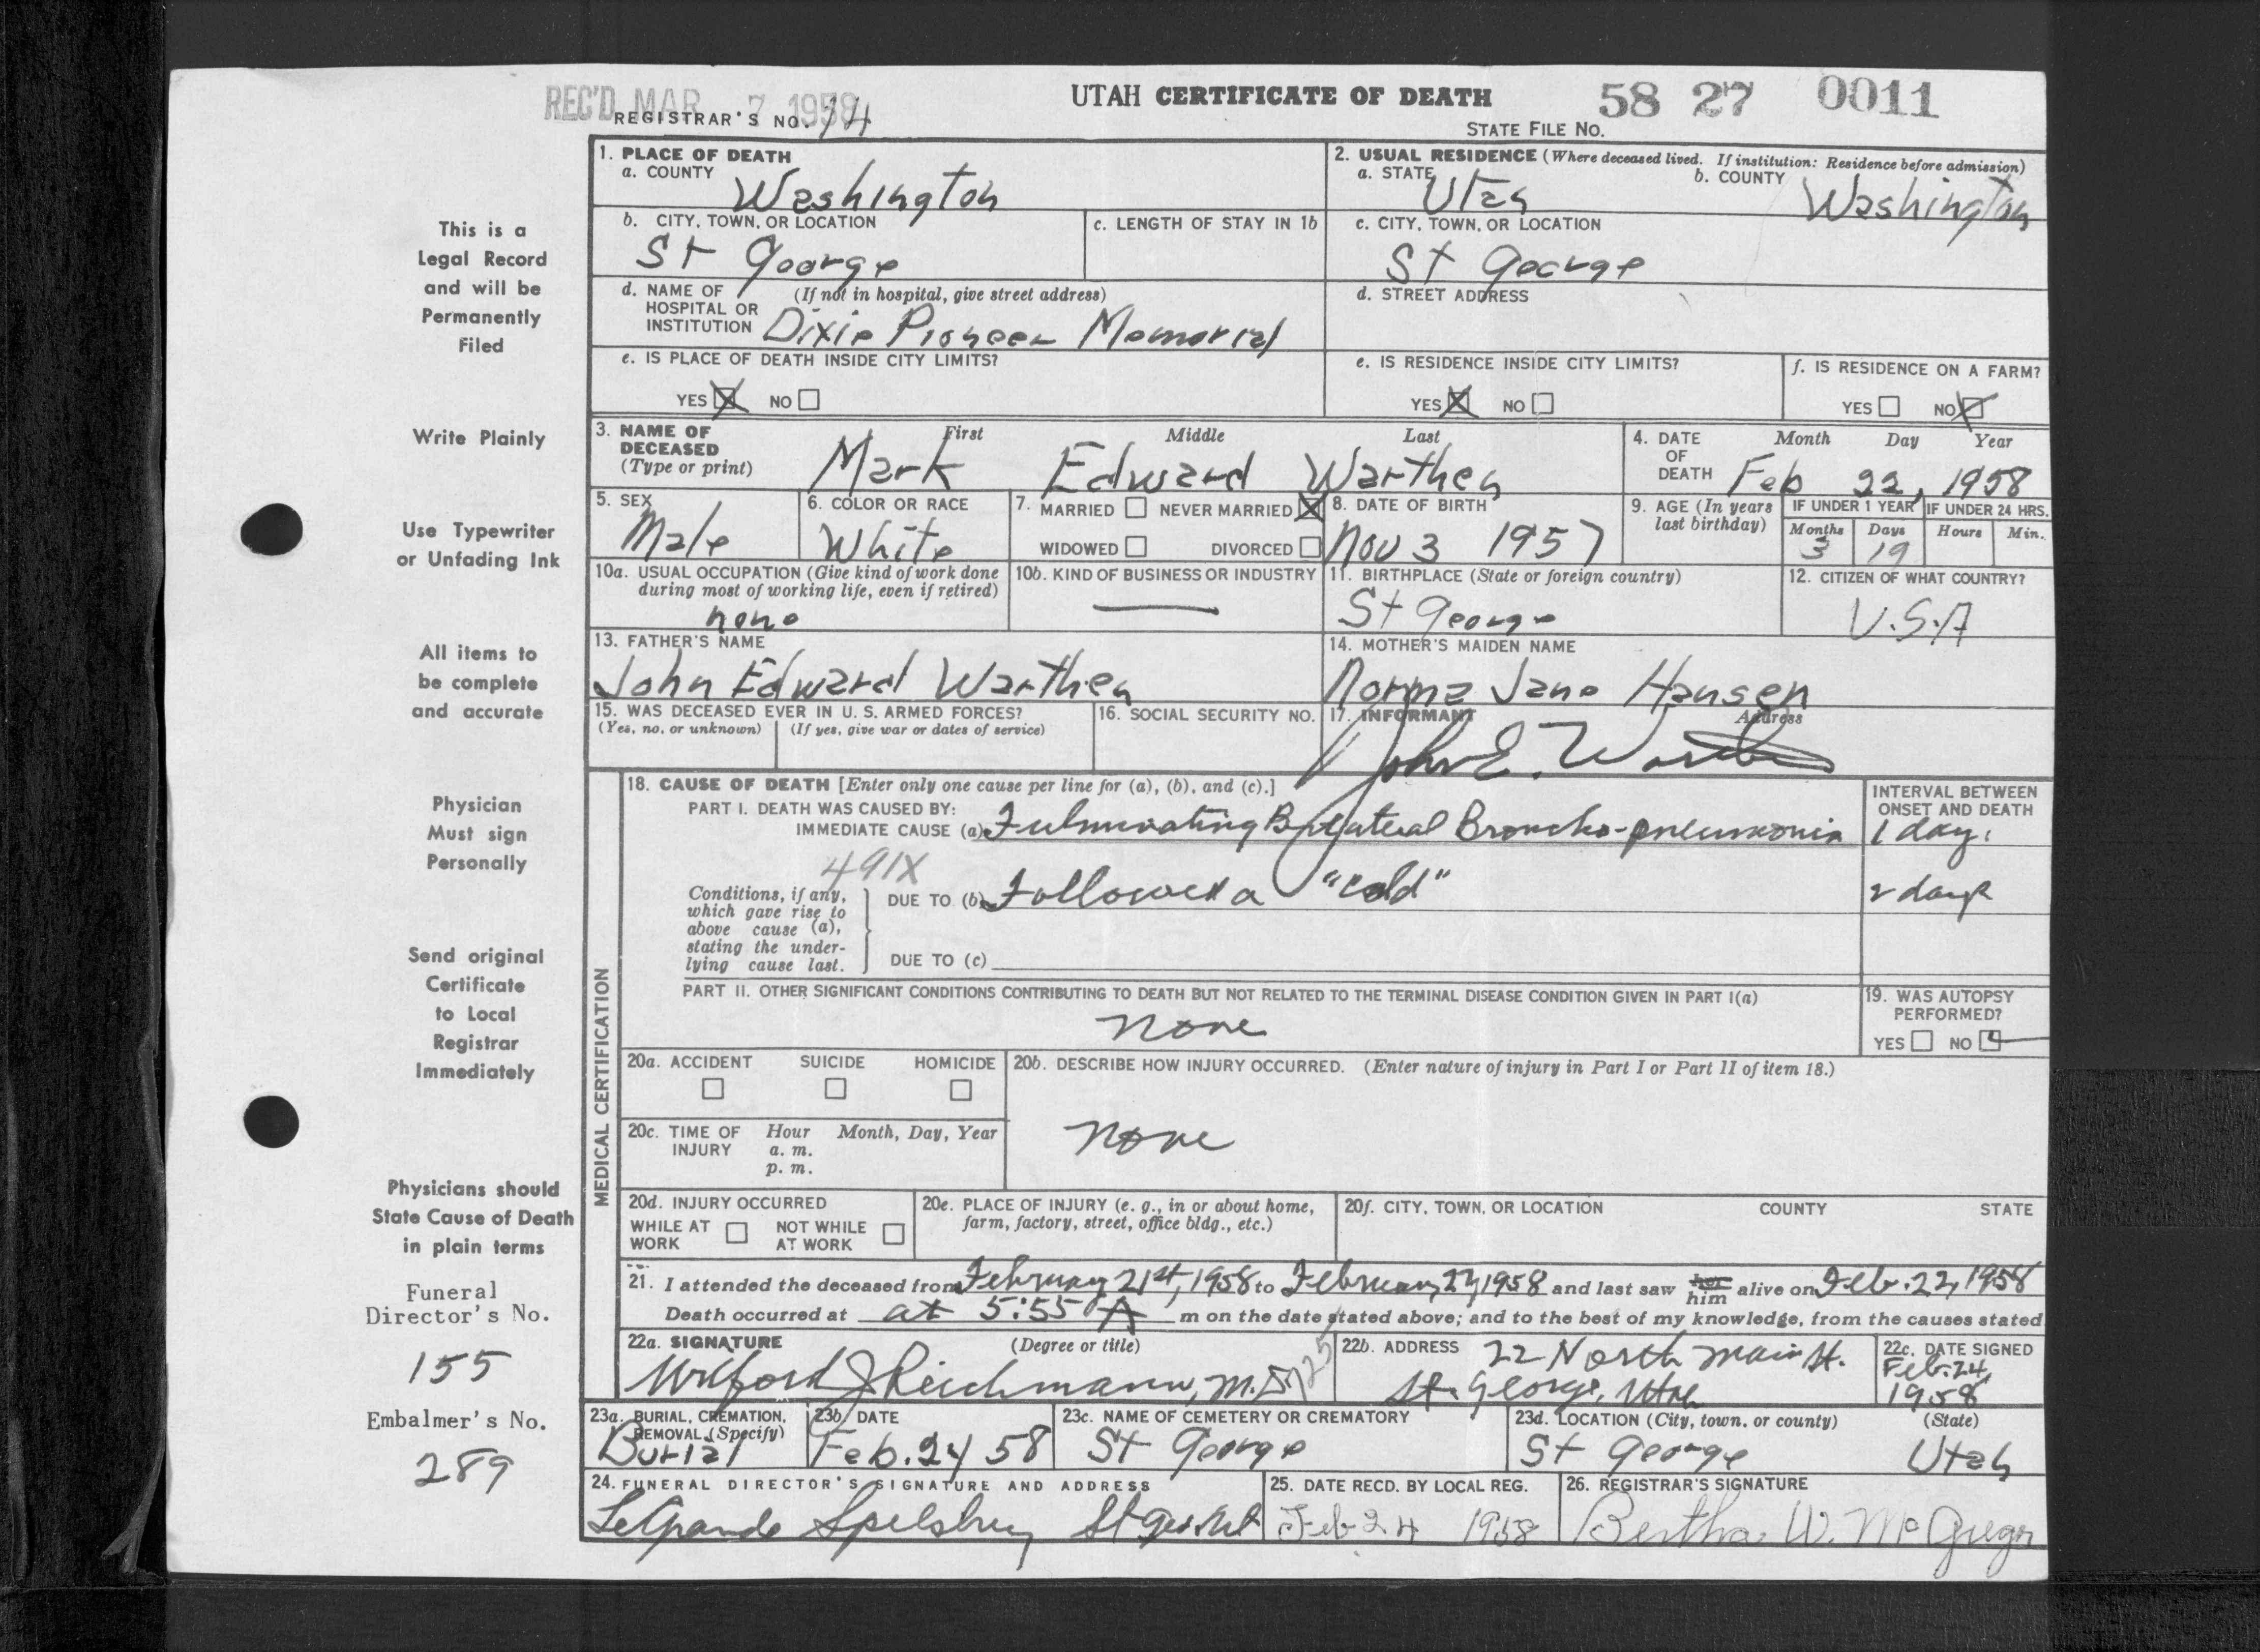 REC'D MAR 7 1958
UTAH CERTIFICATE OF DEATH
58 27 0011
REGISTRAR'S NO. 14
STATE FILE NO.
1. PLACE OF DEATH
a. COUNTY Washington
2. USUAL RESIDENCE (Where deceased lived. If institution: Residence before admission)
a. STATE Utah b. COUNTY Washington
b. CITY, TOWN, OR LOCATION St George
c. LENGTH OF STAY IN 1b
c. CITY, TOWN, OR LOCATION St George
d. NAME OF HOSPITAL OR INSTITUTION (If not in hospital, give street address) Dixie Pioneer Memorial
d. STREET ADDRESS
e. IS PLACE OF DEATH INSIDE CITY LIMITS?
YES X NO
e. IS RESIDENCE INSIDE CITY LIMITS?
YES X NO
f. IS RESIDENCE ON A FARM?
YES NO X
3. NAME OF DECEASED (Type or print) First Middle Last
Mark Edward Warthen
4. DATE OF DEATH Month Day Year
Feb 22, 1958
5. SEX Male
6. COLOR OR RACE White
7. MARRIED NEVER MARRIED X
WIDOWED DIVORCED
8. DATE OF BIRTH Nov 3 1957
9. AGE (In years last birthday)
IF UNDER 1 YEAR Months 3 Days 19
IF UNDER 24 HRS. Hours Min.
10a. USUAL OCCUPATION (Give kind of work done during most of working life, even if retired)
none
10b. KIND OF BUSINESS OR INDUSTRY —
11. BIRTHPLACE (State or foreign country)
St George
12. CITIZEN OF WHAT COUNTRY?
U.S.A
13. FATHER'S NAME
John Edward Warthen
14. MOTHER'S MAIDEN NAME
Norma Jane Hansen
15. WAS DECEASED EVER IN U. S. ARMED FORCES?
(Yes, no, or unknown) (If yes, give war or dates of service)
16. SOCIAL SECURITY NO.
17. INFORMANT Address
John E. Warthen
18. CAUSE OF DEATH [Enter only one cause per line for (a), (b), and (c).]
PART I. DEATH WAS CAUSED BY:
IMMEDIATE CAUSE (a) Fulminating Bilateral Broncho-pneumonia
INTERVAL BETWEEN ONSET AND DEATH
1 day.
491X
Conditions, if any, which gave rise to above cause (a), stating the underlying cause last.
DUE TO (b) Followed a "cold"
2 days
DUE TO (c)
PART II. OTHER SIGNIFICANT CONDITIONS CONTRIBUTING TO DEATH BUT NOT RELATED TO THE TERMINAL DISEASE CONDITION GIVEN IN PART I(a)
None
19. WAS AUTOPSY PERFORMED?
YES NO
20a. ACCIDENT SUICIDE HOMICIDE
20b. DESCRIBE HOW INJURY OCCURRED. (Enter nature of injury in Part I or Part II of item 18.)
None
20c. TIME OF INJURY Hour Month, Day, Year
a. m.
p. m.
20d. INJURY OCCURRED
WHILE AT WORK NOT WHILE AT WORK
20e. PLACE OF INJURY (e. g., in or about home, farm, factory, street, office bldg., etc.)
20f. CITY, TOWN, OR LOCATION COUNTY STATE
21. I attended the deceased from February 21st, 1958 to February 22, 1958 and last saw her him alive on Feb. 22, 1958
Death occurred at at 5:55 A m on the date stated above; and to the best of my knowledge, from the causes stated
22a. SIGNATURE (Degree or title)
Wilford J Reichmann, M.D.
22b. ADDRESS 22 North Main St.
St. George, Utah
22c. DATE SIGNED
Feb. 24, 1958
23a. BURIAL, CREMATION, REMOVAL (Specify) Burial
23b. DATE Feb. 24 58
23c. NAME OF CEMETERY OR CREMATORY St George
23d. LOCATION (City, town, or county) (State)
St George Utah
24. FUNERAL DIRECTOR'S SIGNATURE AND ADDRESS
LeGrande Spilsbury St Geo Ut
25. DATE RECD. BY LOCAL REG.
Feb 24 1958
26. REGISTRAR'S SIGNATURE
Bertha W. McGregor
MEDICAL CERTIFICATION
This is a
Legal Record
and will be
Permanently
Filed
Write Plainly
Use Typewriter
or Unfading Ink
All items to
be complete
and accurate
Physician
Must sign
Personally
Send original
Certificate
to Local
Registrar
Immediately
Physicians should
State Cause of Death
in plain terms
Funeral
Director's No.
155
Embalmer's No.
289